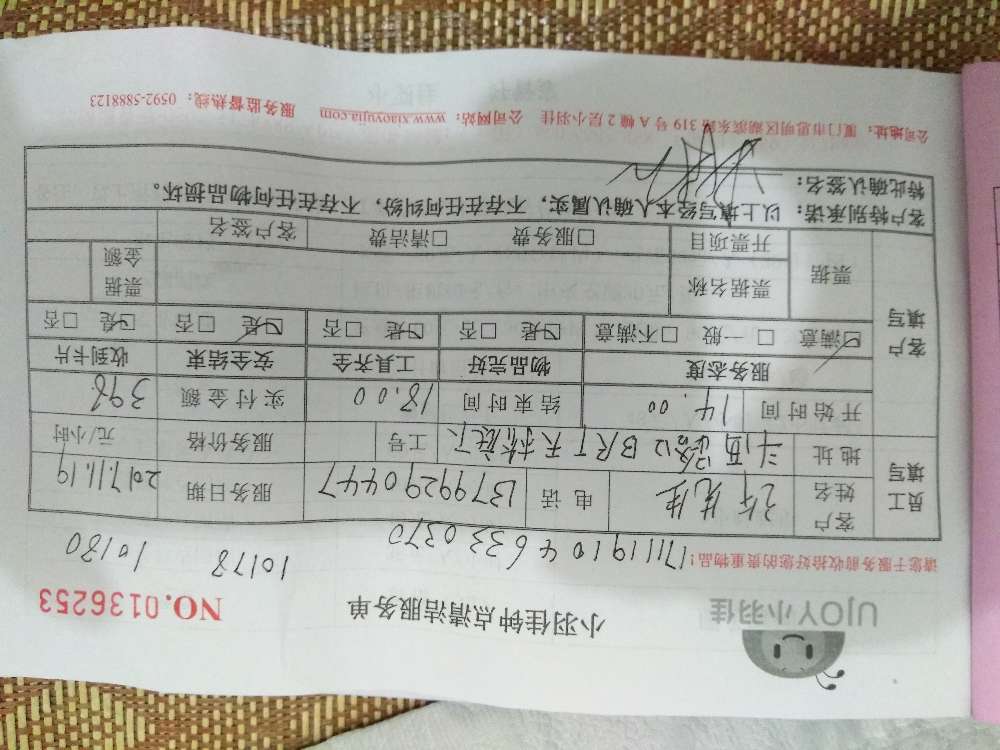 UJOY小羽佳 小羽佳钟点清洁服务单 NO.0136253
请您于服务前收拾好您的贵重物品! 1711191046330370 10178 10180
员工填写 客户姓名 许先生 电话 13799290447 服务日期 2017.11.19
地址 BRT天桥底下 工号 服务价格 元/小时
开始时间 14.00 结束时间 18.00 实付金额 398
客户填写 服务态度 物品完好 工具齐全 安全结束 收到卡片
☑满意 □一般 □不满意 ☑是 □否 ☑是 □否 ☑是 □否 ☑是 □否
票据 票据名称 票据金额
开票项目 □服务费 □清洁费 客户签名
客户特别承诺:以上填写经本人确认属实,不存在任何纠纷,不存在任何物品损坏。
特此确认签名:
公司地址:厦门市思明区湖滨东路319号A幢2层小羽佳 公司网站:www.xiaoyujia.com 服务监督热线:0592-5888123